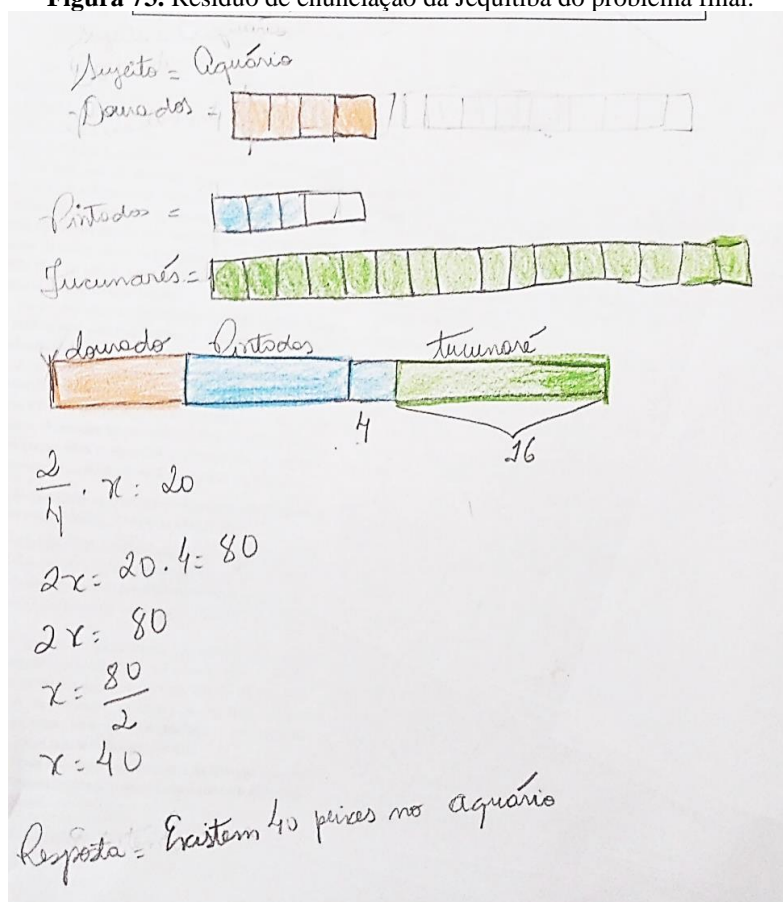 Figura 75. Resíduo de enunciação da Jequitibá do problema final.
Sujeito = Aquário
-Dourados =
-Pintados =
Tucunarés =
dourado Pintados tucunaré
4
16
2/4 . x = 20
2x = 20.4 = 80
2x = 80
x = 80/2
x = 40
Resposta = Existem 40 peixes no aquário